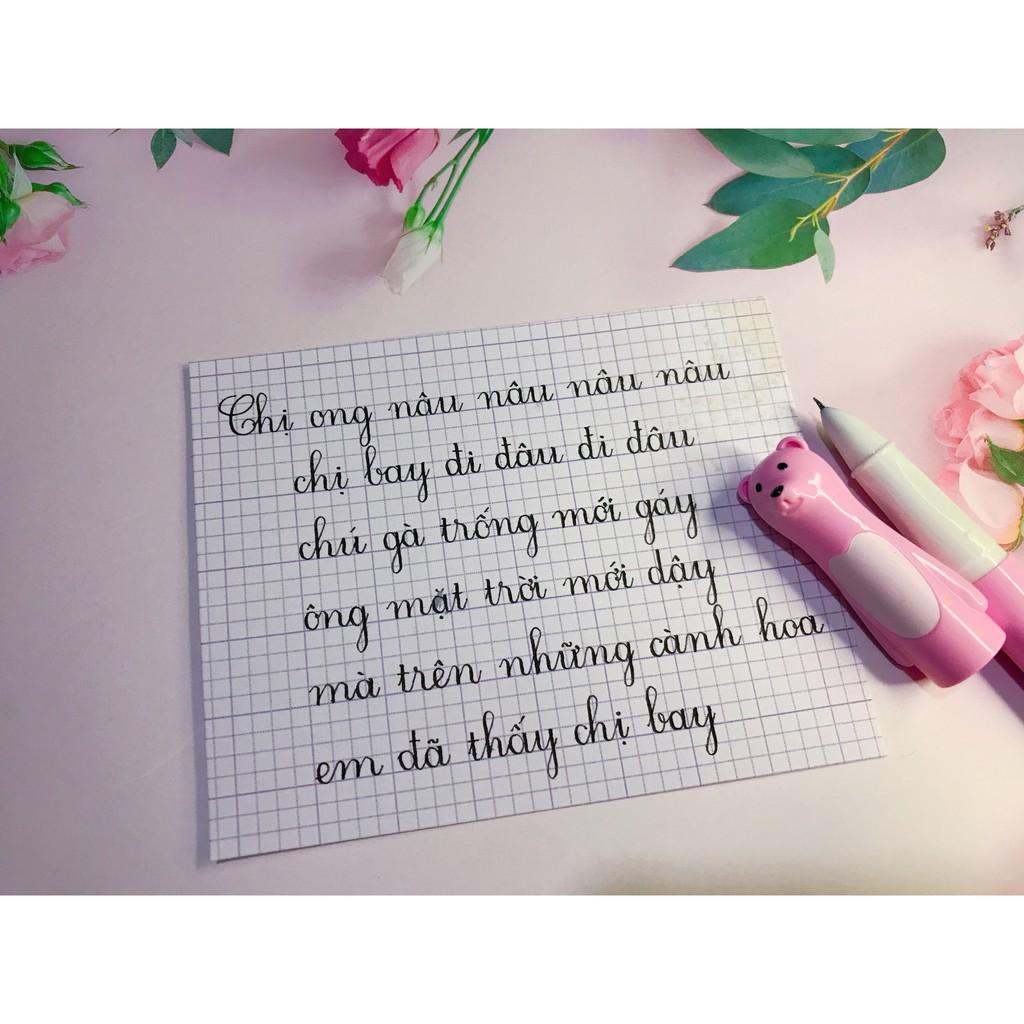 Chị ong nâu nâu nâu nâu
chị bay đi đâu đi đâu
chú gà trống mới gáy
ông mặt trời mới dậy
mà trên những cành hoa
em đã thấy chị bay